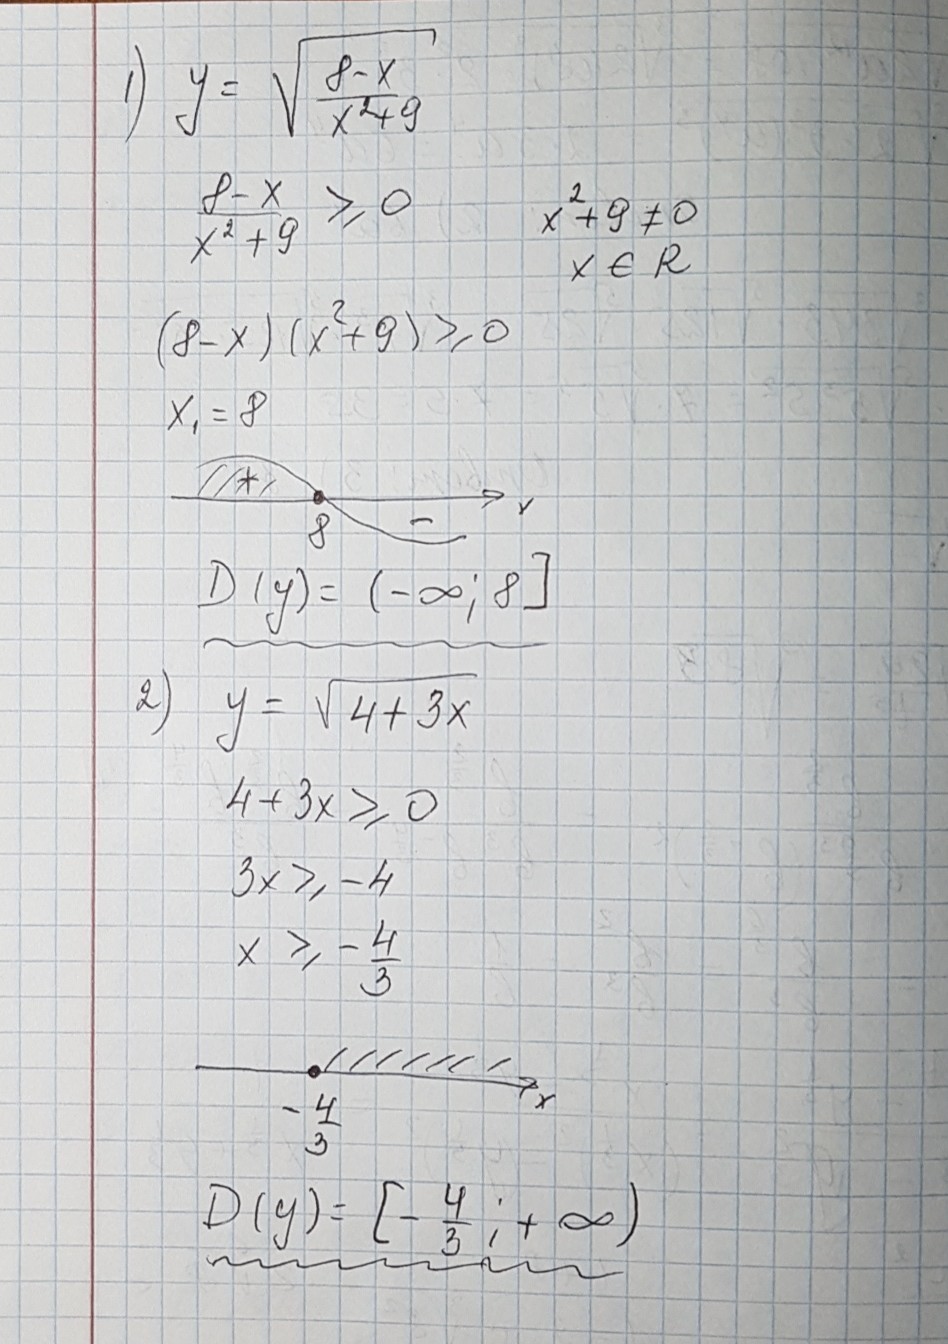 1) y = √((8-x)/(x²+9))
(8-x)/(x²+9) ⩾ 0    x²+9 ≠ 0
x ∈ R
(8-x)(x²+9) ⩾ 0
x₁ = 8
+
8    -    x
D(y) = (-∞; 8]
2) y = √(4+3x)
4+3x ⩾ 0
3x ⩾ -4
x ⩾ -4/3
-4/3    x
D(y) = [-4/3; +∞)